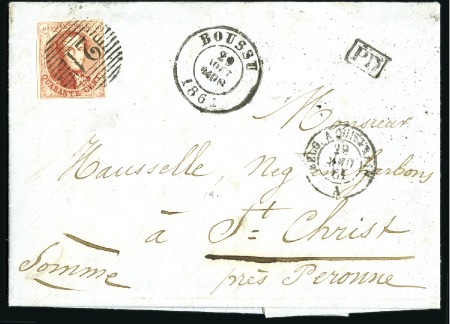 BOUSSU
29
AOUT
1861
PD
24
QUARANTE CENT
Monsieur
BELG. A QUIEVRAIN
29
AOUT
61
A
Hausselle, Neg Charbons
à St Christ
Somme près Peronne